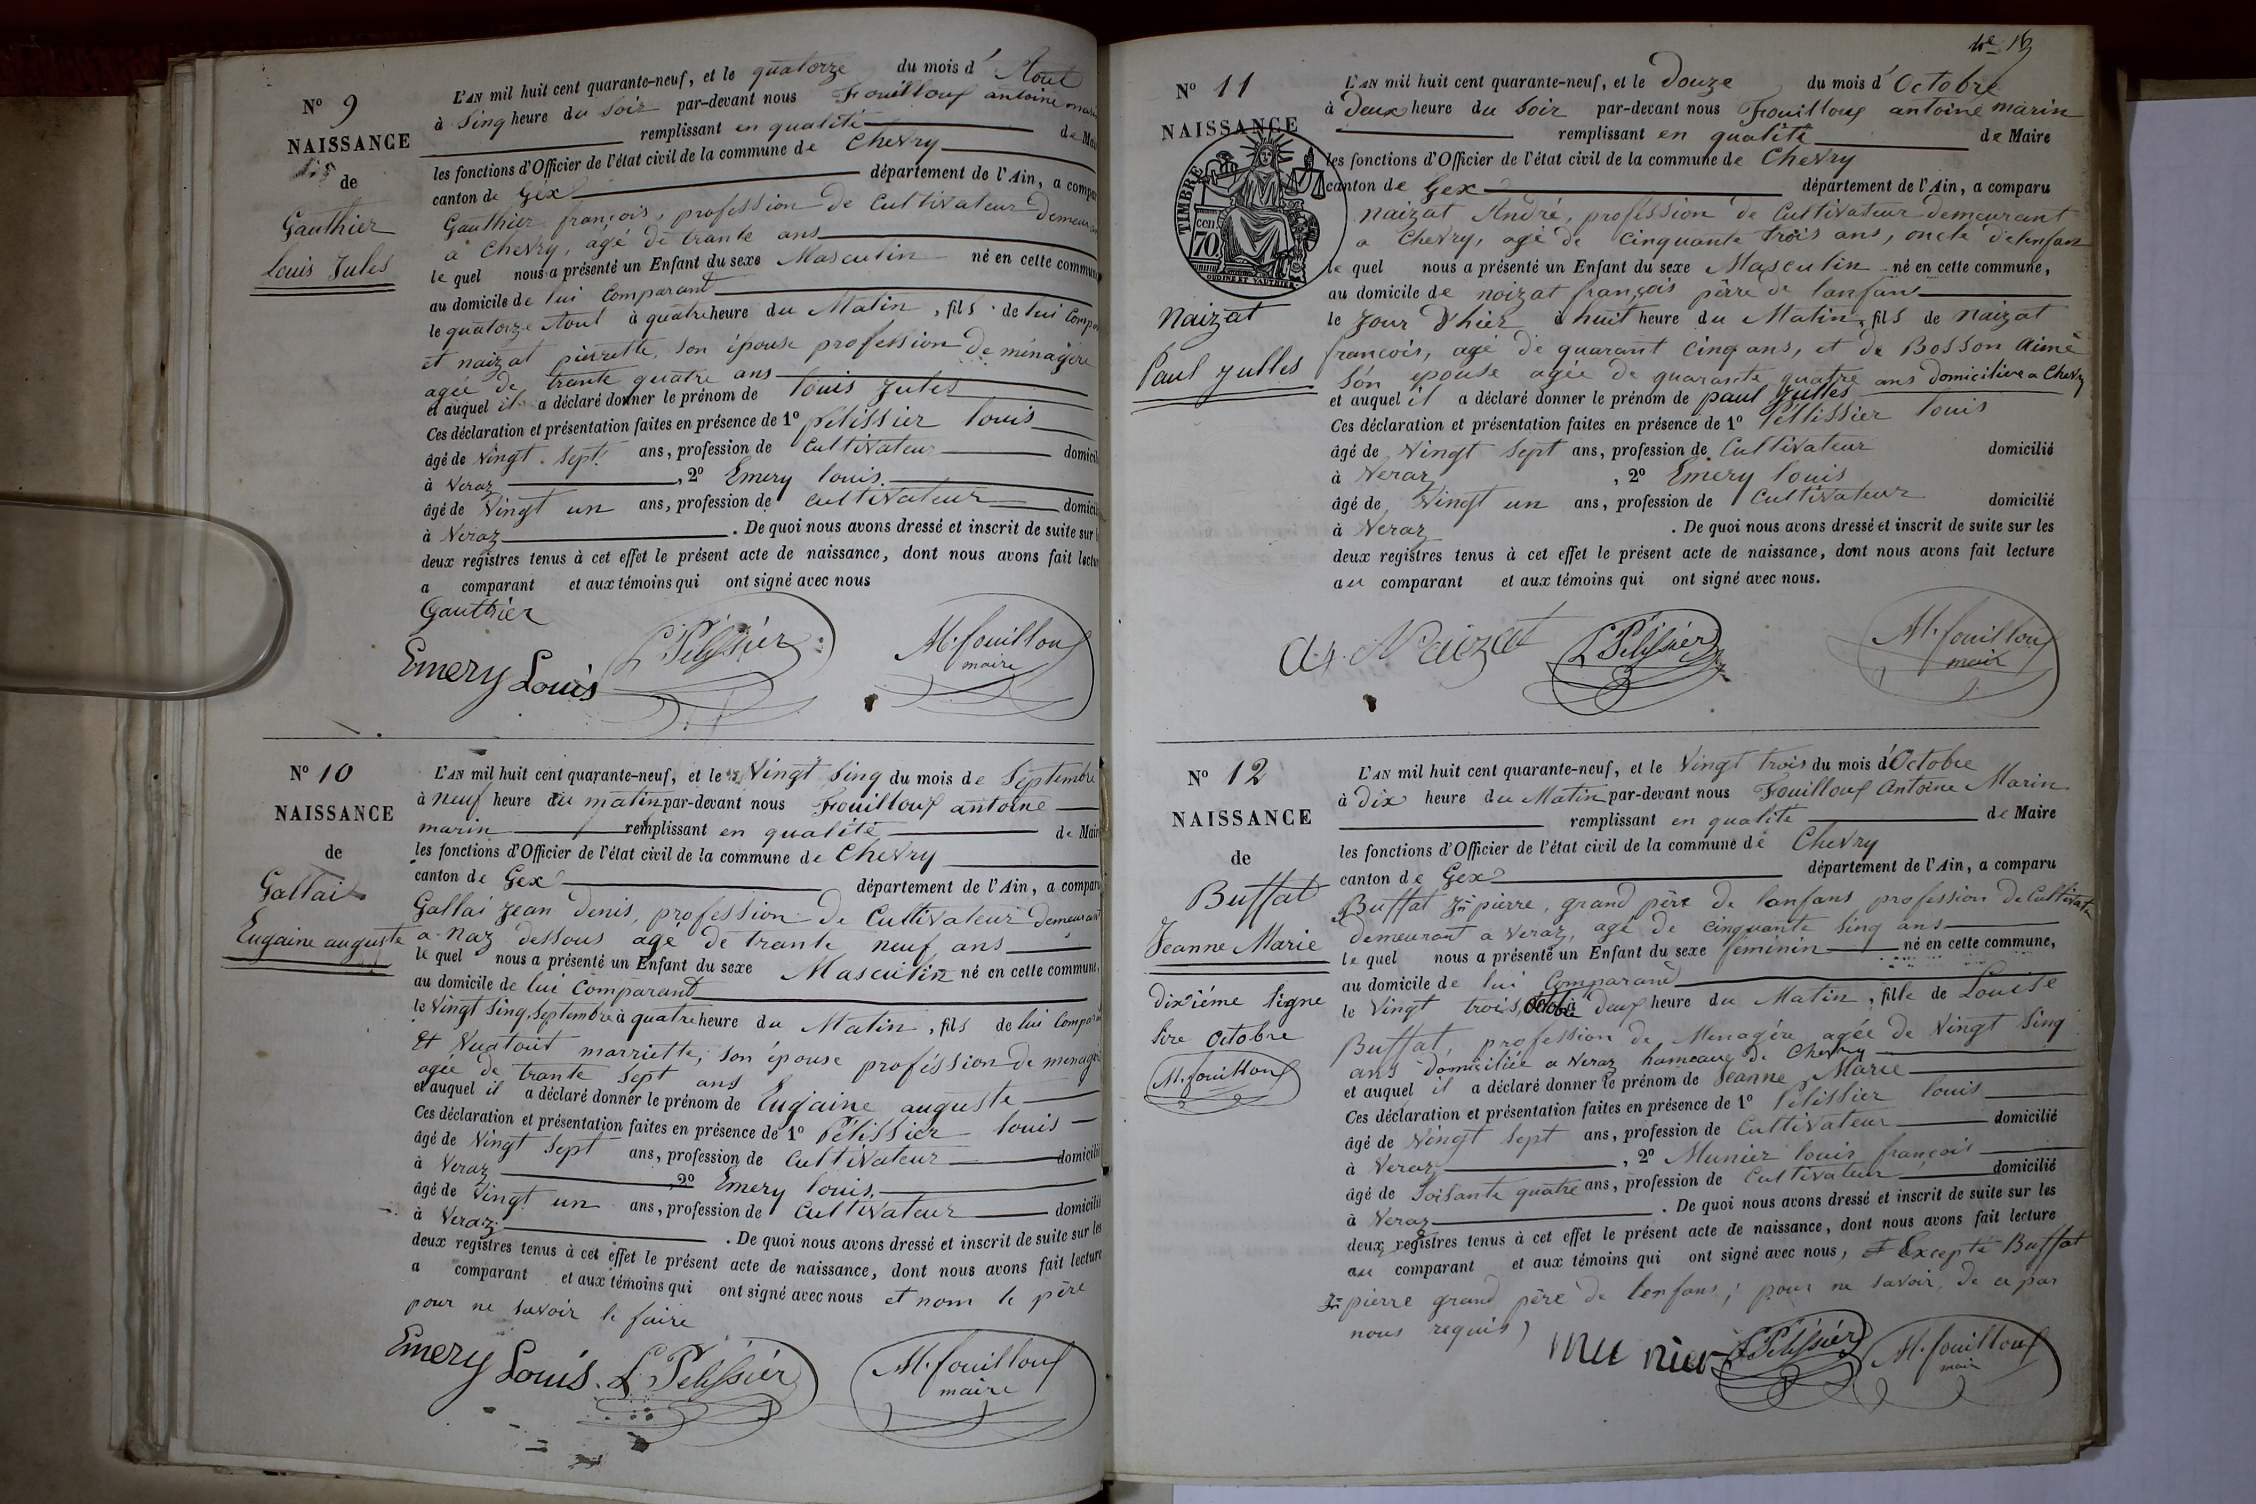 N° 9
NAISSANCE
de
Gauthier
Louis Jules
L'AN mil huit cent quarante-neuf, et le quatorze du mois d' Aout
à sing heure du soir par-devant nous Fouilloux antoine marin
remplissant en qualité de Mai
les fonctions d'Officier de l'état civil de la commune de Chevry
canton de Gex département de l'Ain, a compar
Gauthier françois, profession de cultivateur demeurant
a Chevry, agé de trante ans
le quel nous a présenté un Enfant du sexe Masculin né en cette commune
au domicile de lui Comparant
le quatorze Aout à quatre heure du Matin, fils de lui Compa
et naizat pierrette, son épouse profession de ménagère
agée de trante quatre ans
et auquel il a déclaré donner le prénom de louis jules
Ces déclaration et présentation faites en présence de 1° pélissier louis
âgé de vingt sept ans, profession de cultivateur domicili
à veraz, 2° Emery louis
âgé de vingt un ans, profession de cultivateur domicili
à Veraz. De quoi nous avons dressé et inscrit de suite sur l
deux registres tenus à cet effet le présent acte de naissance, dont nous avons fait lectur
a comparant et aux témoins qui ont signé avec nous
Gauthier
Emery Louis L Pélissier M. fouilloux
maire
N° 10
NAISSANCE
de
Gallai
Eugaine auguste
L'AN mil huit cent quarante-neuf, et le Vingt sing du mois de Septembre
à neuf heure du matin par-devant nous Fouilloux antoine
marin remplissant en qualité de Mair
les fonctions d'Officier de l'état civil de la commune de Chevry
canton de Gex département de l'Ain, a compar
Gallai jean Denis, profession de Cultivateur demeurant
a Naz dessous agé de trante neuf ans
le quel nous a présenté un Enfant du sexe Masculin né en cette commune,
au domicile de lui Comparant
le Vingt sing, Septembre à quatre heure du Matin, fils de lui Compar
Et marriette, son épouse profession de menage
agée de trante sept ans
et auquel il a déclaré donner le prénom de Eugaine auguste
Ces déclaration et présentation faites en présence de 1° Pélissier louis
âgé de Vingt sept ans, profession de cultivateur domicilié
à Veraz, 2° Emery louis
âgé de Vingt un ans, profession de cultivateur domicilié
à Veraz. De quoi nous avons dressé et inscrit de suite sur les
deux registres tenus à cet effet le présent acte de naissance, dont nous avons fait lecture
a comparant et aux témoins qui ont signé avec nous et nom le père
pour ne savoir le faire
Emery Louis. L Pélissier M. fouilloux
maire
N° 11
NAISSANCE
TIMBRE
70 cen
OUDINÉ ET VAUTHIER
Naizat
Paul julles
L'AN mil huit cent quarante-neuf, et le Douze du mois d' Octobre
à Deux heure du soir par-devant nous Fouilloux antoine marin
remplissant en qualité de Maire
les fonctions d'Officier de l'état civil de la commune de Chevry
canton de Gex département de l'Ain, a comparu
naizat André, profession de Cultivateur demeurant
a Chevry, agé de Cinquante trois ans, oncle delenfan
le quel nous a présenté un Enfant du sexe Masculin né en cette commune,
au domicile de noizat françois père de lanfans
le jour d'hier à huit heure du Matin, fils de naizat
francois, agé de quarant cinq ans, et de Bosson Aimé
son epouse agée de quarante quatre ans domiciliée a Chevry
et auquel il a déclaré donner le prénom de paul jullès
Ces déclaration et présentation faites en présence de 1° Péllissier louis
âgé de Vingt sept ans, profession de Cultivateur domicilié
à Veraz, 2° Emery louis
âgé de Vingt un ans, profession de Cultivateur domicilié
à Veraz. De quoi nous avons dressé et inscrit de suite sur les
deux registres tenus à cet effet le présent acte de naissance, dont nous avons fait lecture
au comparant et aux témoins qui ont signé avec nous.
Naizat L Pélissier M. fouilloux
mair
N° 12
NAISSANCE
de
Buffat
Jeanne Marie
dixième ligne
lire octobre
M. fouilloux
L'AN mil huit cent quarante-neuf, et le Vingt trois du mois d'Octobre
à Dix heure du Matin par-devant nous Fouilloux Antoine Marin
remplissant en qualité de Maire
les fonctions d'Officier de l'état civil de la commune de Chevry
canton de Gex département de l'Ain, a comparu
Buffat Jn pierre, grand père de lanfans profession de Cultivate
demeurant a veraz, agé de cinquante sing ans
le quel nous a présenté un Enfant du sexe féminin né en cette commune,
au domicile de lui Comparant
le Vingt trois, octobre à Deux heure du Matin, fille de Louise
Buffat, profession de Menagère agée de Vingt sing
ans domiciliée a Veraz hameaux de Chevry
et auquel il a déclaré donner le prénom de Jeanne Marie
Ces déclaration et présentation faites en présence de 1° Pélissier louis
âgé de Vingt sept ans, profession de Cultivateur domicilié
à Veraz, 2° Munier louis françois
âgé de soisante quatre ans, profession de Cultivateur domicilié
à Veraz. De quoi nous avons dressé et inscrit de suite sur les
deux registres tenus à cet effet le présent acte de naissance, dont nous avons fait lecture
au comparant et aux témoins qui ont signé avec nous, Excepté Buffat
Jn pierre grand père de lenfans, pour ne savoir, de ce par
nous requis)
mu nier L Pélissier M. fouilloux
mair